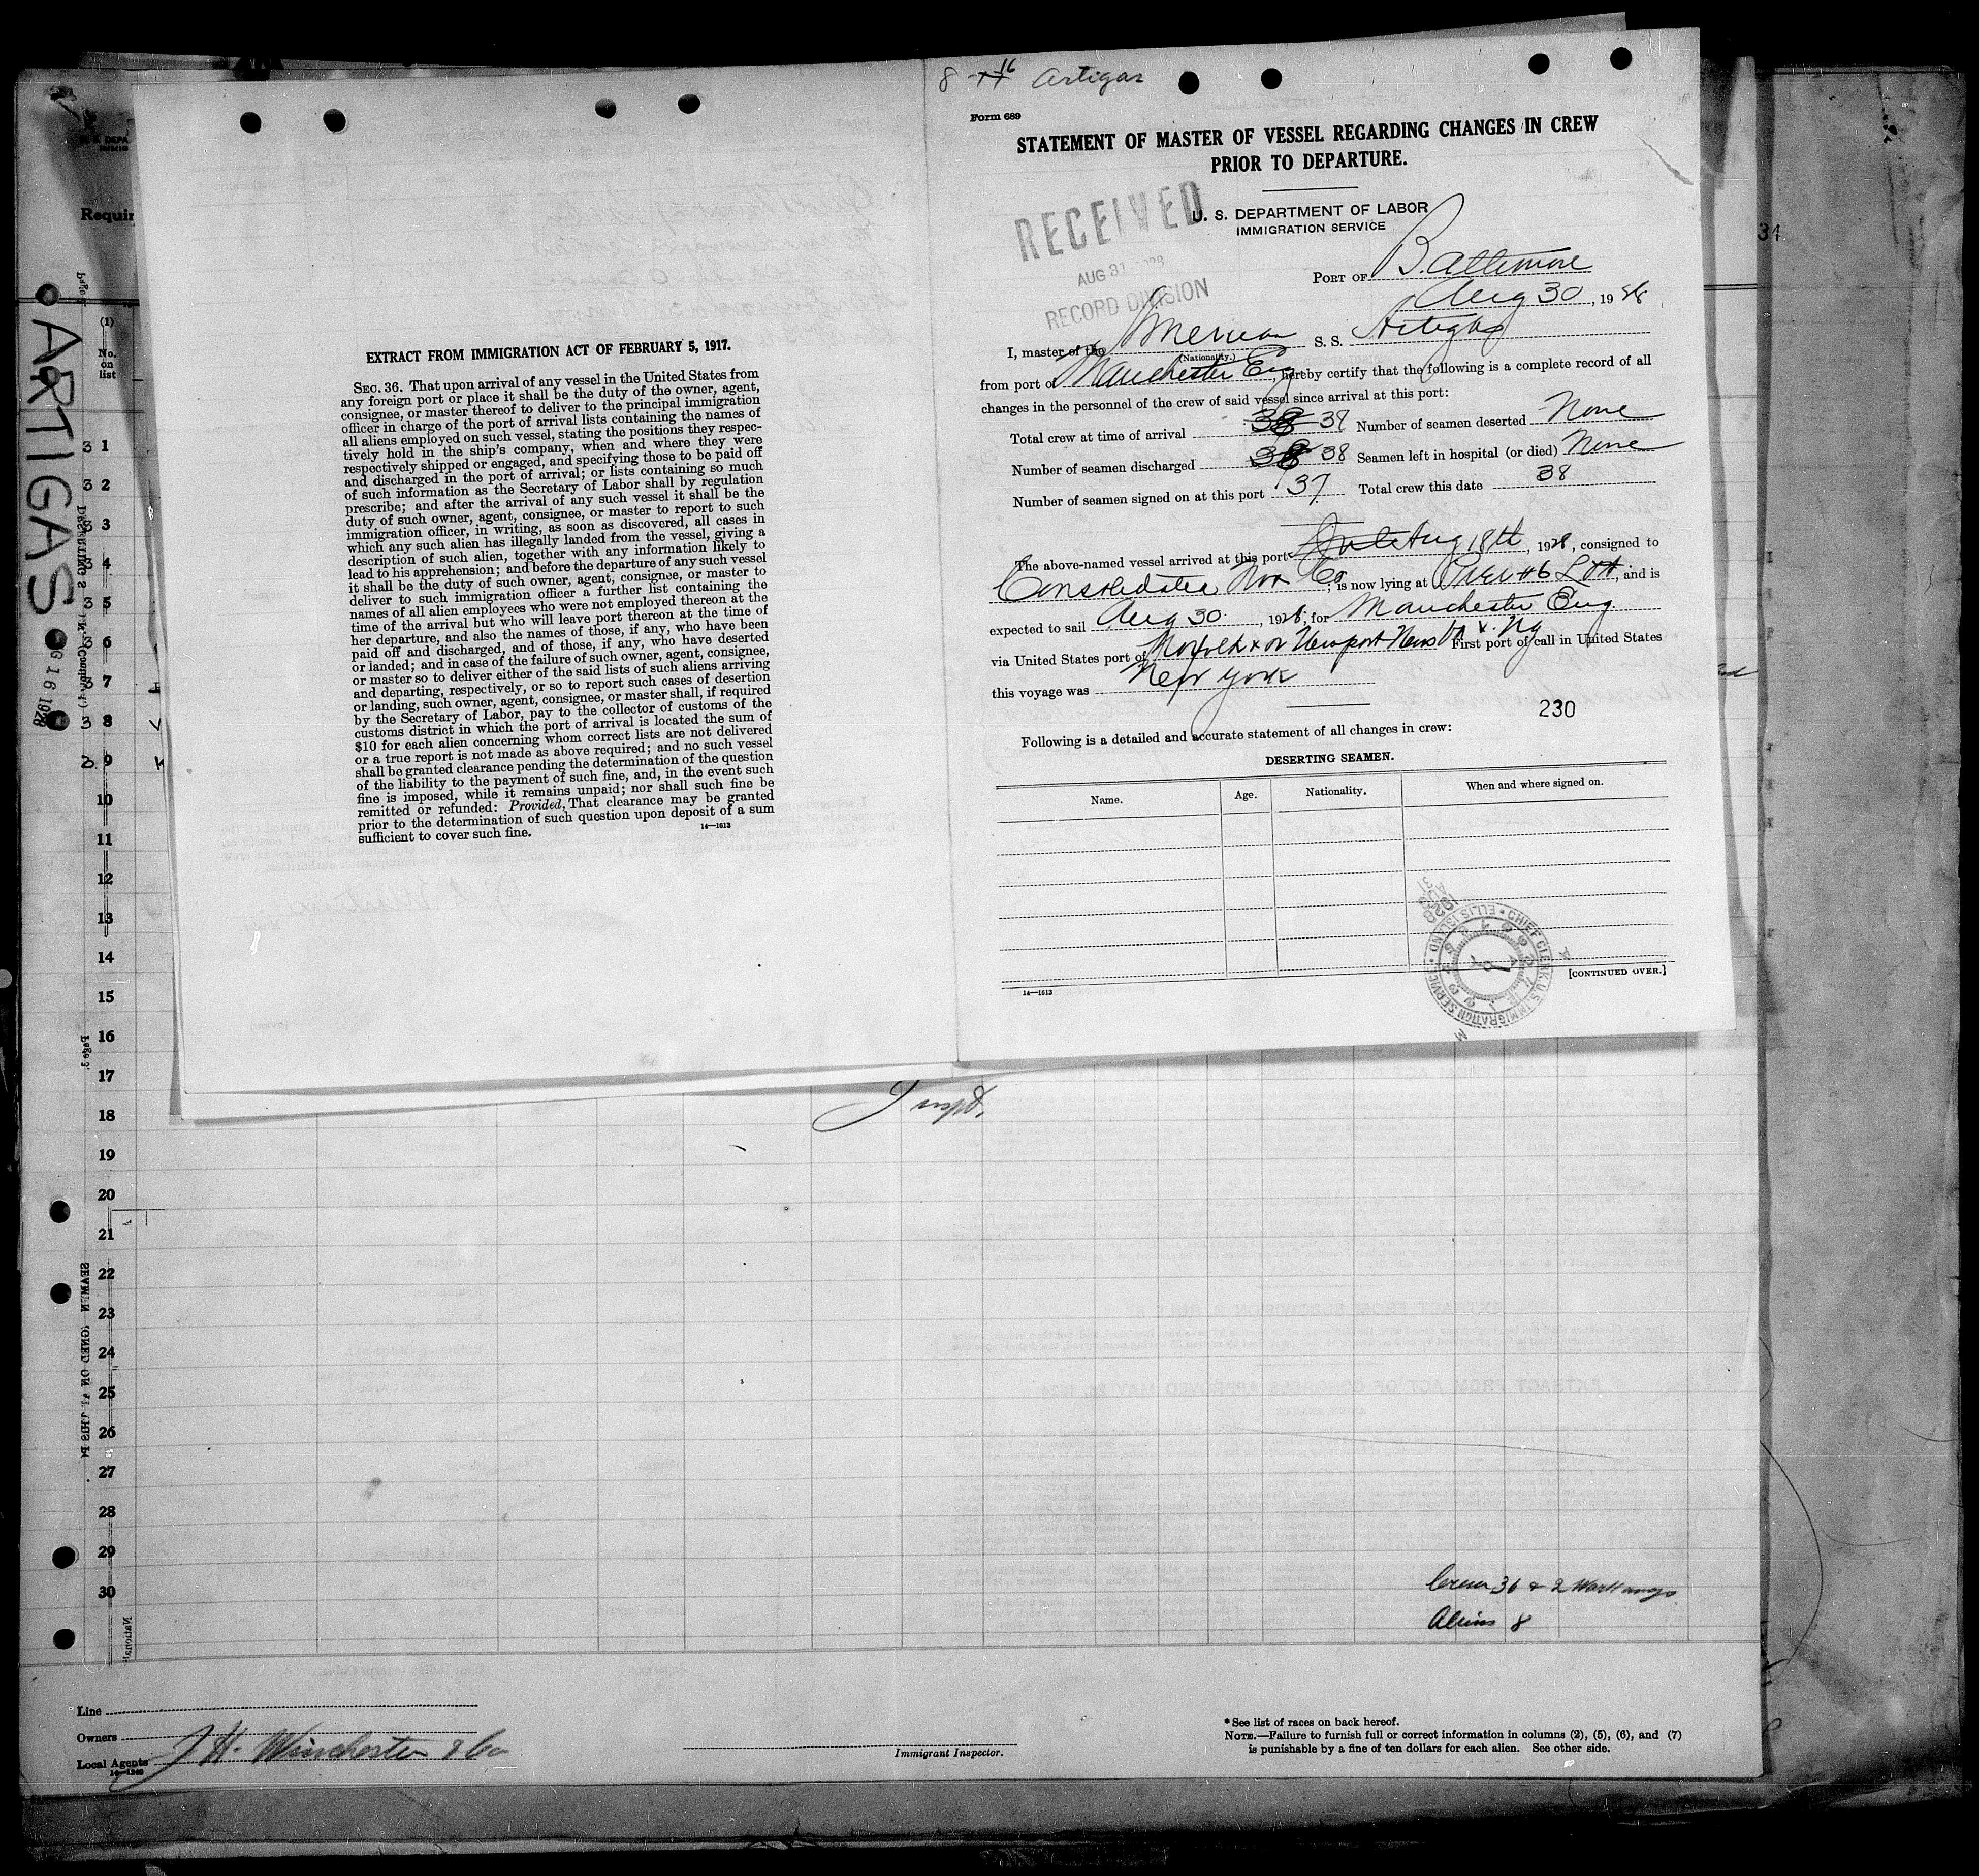 8 16 Artigas
Form 689
STATEMENT OF MASTER OF VESSEL REGARDING CHANGES IN CREW
PRIOR TO DEPARTURE.
U. S. DEPARTMENT OF LABOR
IMMIGRATION SERVICE
RECEIVED
AUG 31 1928
RECORD DIVISION
PORT OF Baltimore
Aug 30, 1928
I, master of the American S. S. Artigas
(Nationality.)
from port of Manchester Eng, hereby certify that the following is a complete record of all
changes in the personnel of the crew of said vessel since arrival at this port:
Total crew at time of arrival 38 39 Number of seamen deserted None
Number of seamen discharged 38 38 Seamen left in hospital (or died) None
Number of seamen signed on at this port 37 Total crew this date 38
The above-named vessel arrived at this port Aug 18th, 1928, consigned to
Consolidated Nav Co, is now lying at Pier #6, and is
expected to sail Aug 30, 1928, for Manchester Eng.
via United States port of Norfolk & or Newport News Va First port of call in United States
this voyage was New York
230
Following is a detailed and accurate statement of all changes in crew:
DESERTING SEAMEN.
Name. Age. Nationality. When and where signed on.
[CONTINUED OVER.]
14—1613
CHIEF CLERK U.S. IMMIGRATION SERVICE • ELLIS ISLAND •
EXTRACT FROM IMMIGRATION ACT OF FEBRUARY 5, 1917.
SEC. 36. That upon arrival of any vessel in the United States from
any foreign port or place it shall be the duty of the owner, agent,
consignee, or master thereof to deliver to the principal immigration
officer in charge of the port of arrival lists containing the names of
all aliens employed on such vessel, stating the positions they respec-
tively hold in the ship's company, when and where they were
respectively shipped or engaged, and specifying those to be paid off
and discharged in the port of arrival; or lists containing so much
of such information as the Secretary of Labor shall by regulation
prescribe; and after the arrival of any such vessel it shall be the
duty of such owner, agent, consignee, or master to report to such
immigration officer, in writing, as soon as discovered, all cases in
which any such alien has illegally landed from the vessel, giving a
description of such alien, together with any information likely to
lead to his apprehension; and before the departure of any such vessel
it shall be the duty of such owner, agent, consignee, or master to
deliver to such immigration officer a further list containing the
names of all alien employees who were not employed thereon at the
time of the arrival but who will leave port thereon at the time of
her departure, and also the names of those, if any, who have been
paid off and discharged, and of those, if any, who have deserted
or landed; and in case of the failure of such owner, agent, consignee,
or master so to deliver either of the said lists of such aliens arriving
and departing, respectively, or so to report such cases of desertion
or landing, such owner, agent, consignee, or master shall, if required
by the Secretary of Labor, pay to the collector of customs of the
customs district in which the port of arrival is located the sum of
$10 for each alien concerning whom correct lists are not delivered
or a true report is not made as above required; and no such vessel
shall be granted clearance pending the determination of the question
of the liability to the payment of such fine, and, in the event such
fine is imposed, while it remains unpaid; nor shall such fine be
remitted or refunded: Provided, That clearance may be granted
prior to the determination of such question upon deposit of a sum
sufficient to cover such fine.
14—1613
Requir
(1)
No.
on
list
ARTIGAS
G 16 1928
3 1
3 2
3 3
3 4
3 5
3 6
3 7
3 8
3 9
10
11
12
13
14
15
16
17
18
19
20
21
22
23
24
25
26
27
28
29
30
34
Crew 36 & 2 Workaways
Aliens 8
Line
Owners
Local Agents J H. Winchester & Co
14—1240
Immigrant Inspector.
* See list of races on back hereof.
NOTE.—Failure to furnish full or correct information in columns (2), (5), (6), and (7)
is punishable by a fine of ten dollars for each alien. See other side.